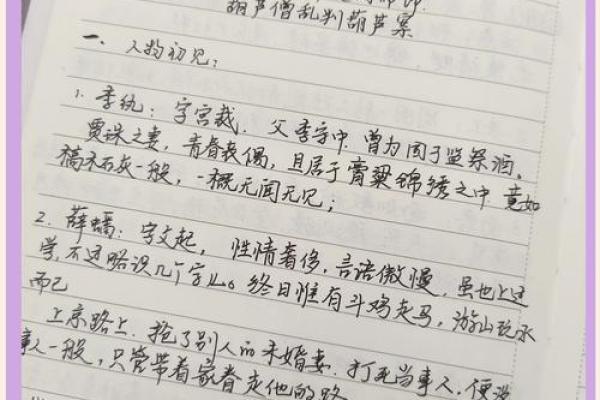 葫芦僧乱判葫芦案
一、人物初见：
1. 李纨：字宫裁. 父李守中. 曾为国子监祭酒。
贾珠之妻，青春丧偶，且居于膏粱锦绣之中 竟如
槁木石灰一般，一概无闻无见；
2. 薛蟠：字文起， 性情奢侈，言语傲慢，虽也上过
学，不过略识几个字儿。终日惟有斗鸡走马，游山玩水
而已
上京路上. 抢了别人的未婚妻. 打死当事人，便没
事人一般，只管带着家眷走他的路